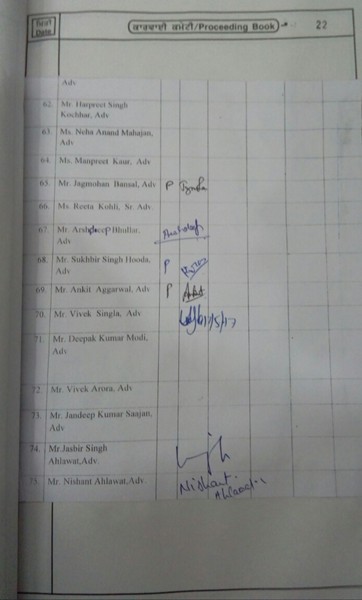 ਮਿਤੀ
Date
ਕਾਰਵਾਈ ਕਮੇਟੀ/Proceeding Book
22
Adv
62. Mr. Harpreet Singh
Kochhar, Adv
63. Ms. Neha Anand Mahajan,
Adv
64. Ms. Manpreet Kaur, Adv
65. Mr. Jagmohan Bansal, Adv P
66. Ms. Reeta Kohli, Sr. Adv
67. Mr. Arshdeep Bhullar,
Adv
68. Mr. Sukhbir Singh Hooda, P
Adv
69. Mr. Ankit Aggarwal, Adv P Ankit
70. Mr. Vivek Singla, Adv 17/5/17
71. Mr. Deepak Kumar Modi,
Adv
72. Mr. Vivek Arora, Adv
73. Mr. Jandeep Kumar Saajan,
Adv
74. Mr.Jasbir Singh
Ahlawat,Adv
75. Mr. Nishant Ahlawat,Adv. Nishant
Ahlawat